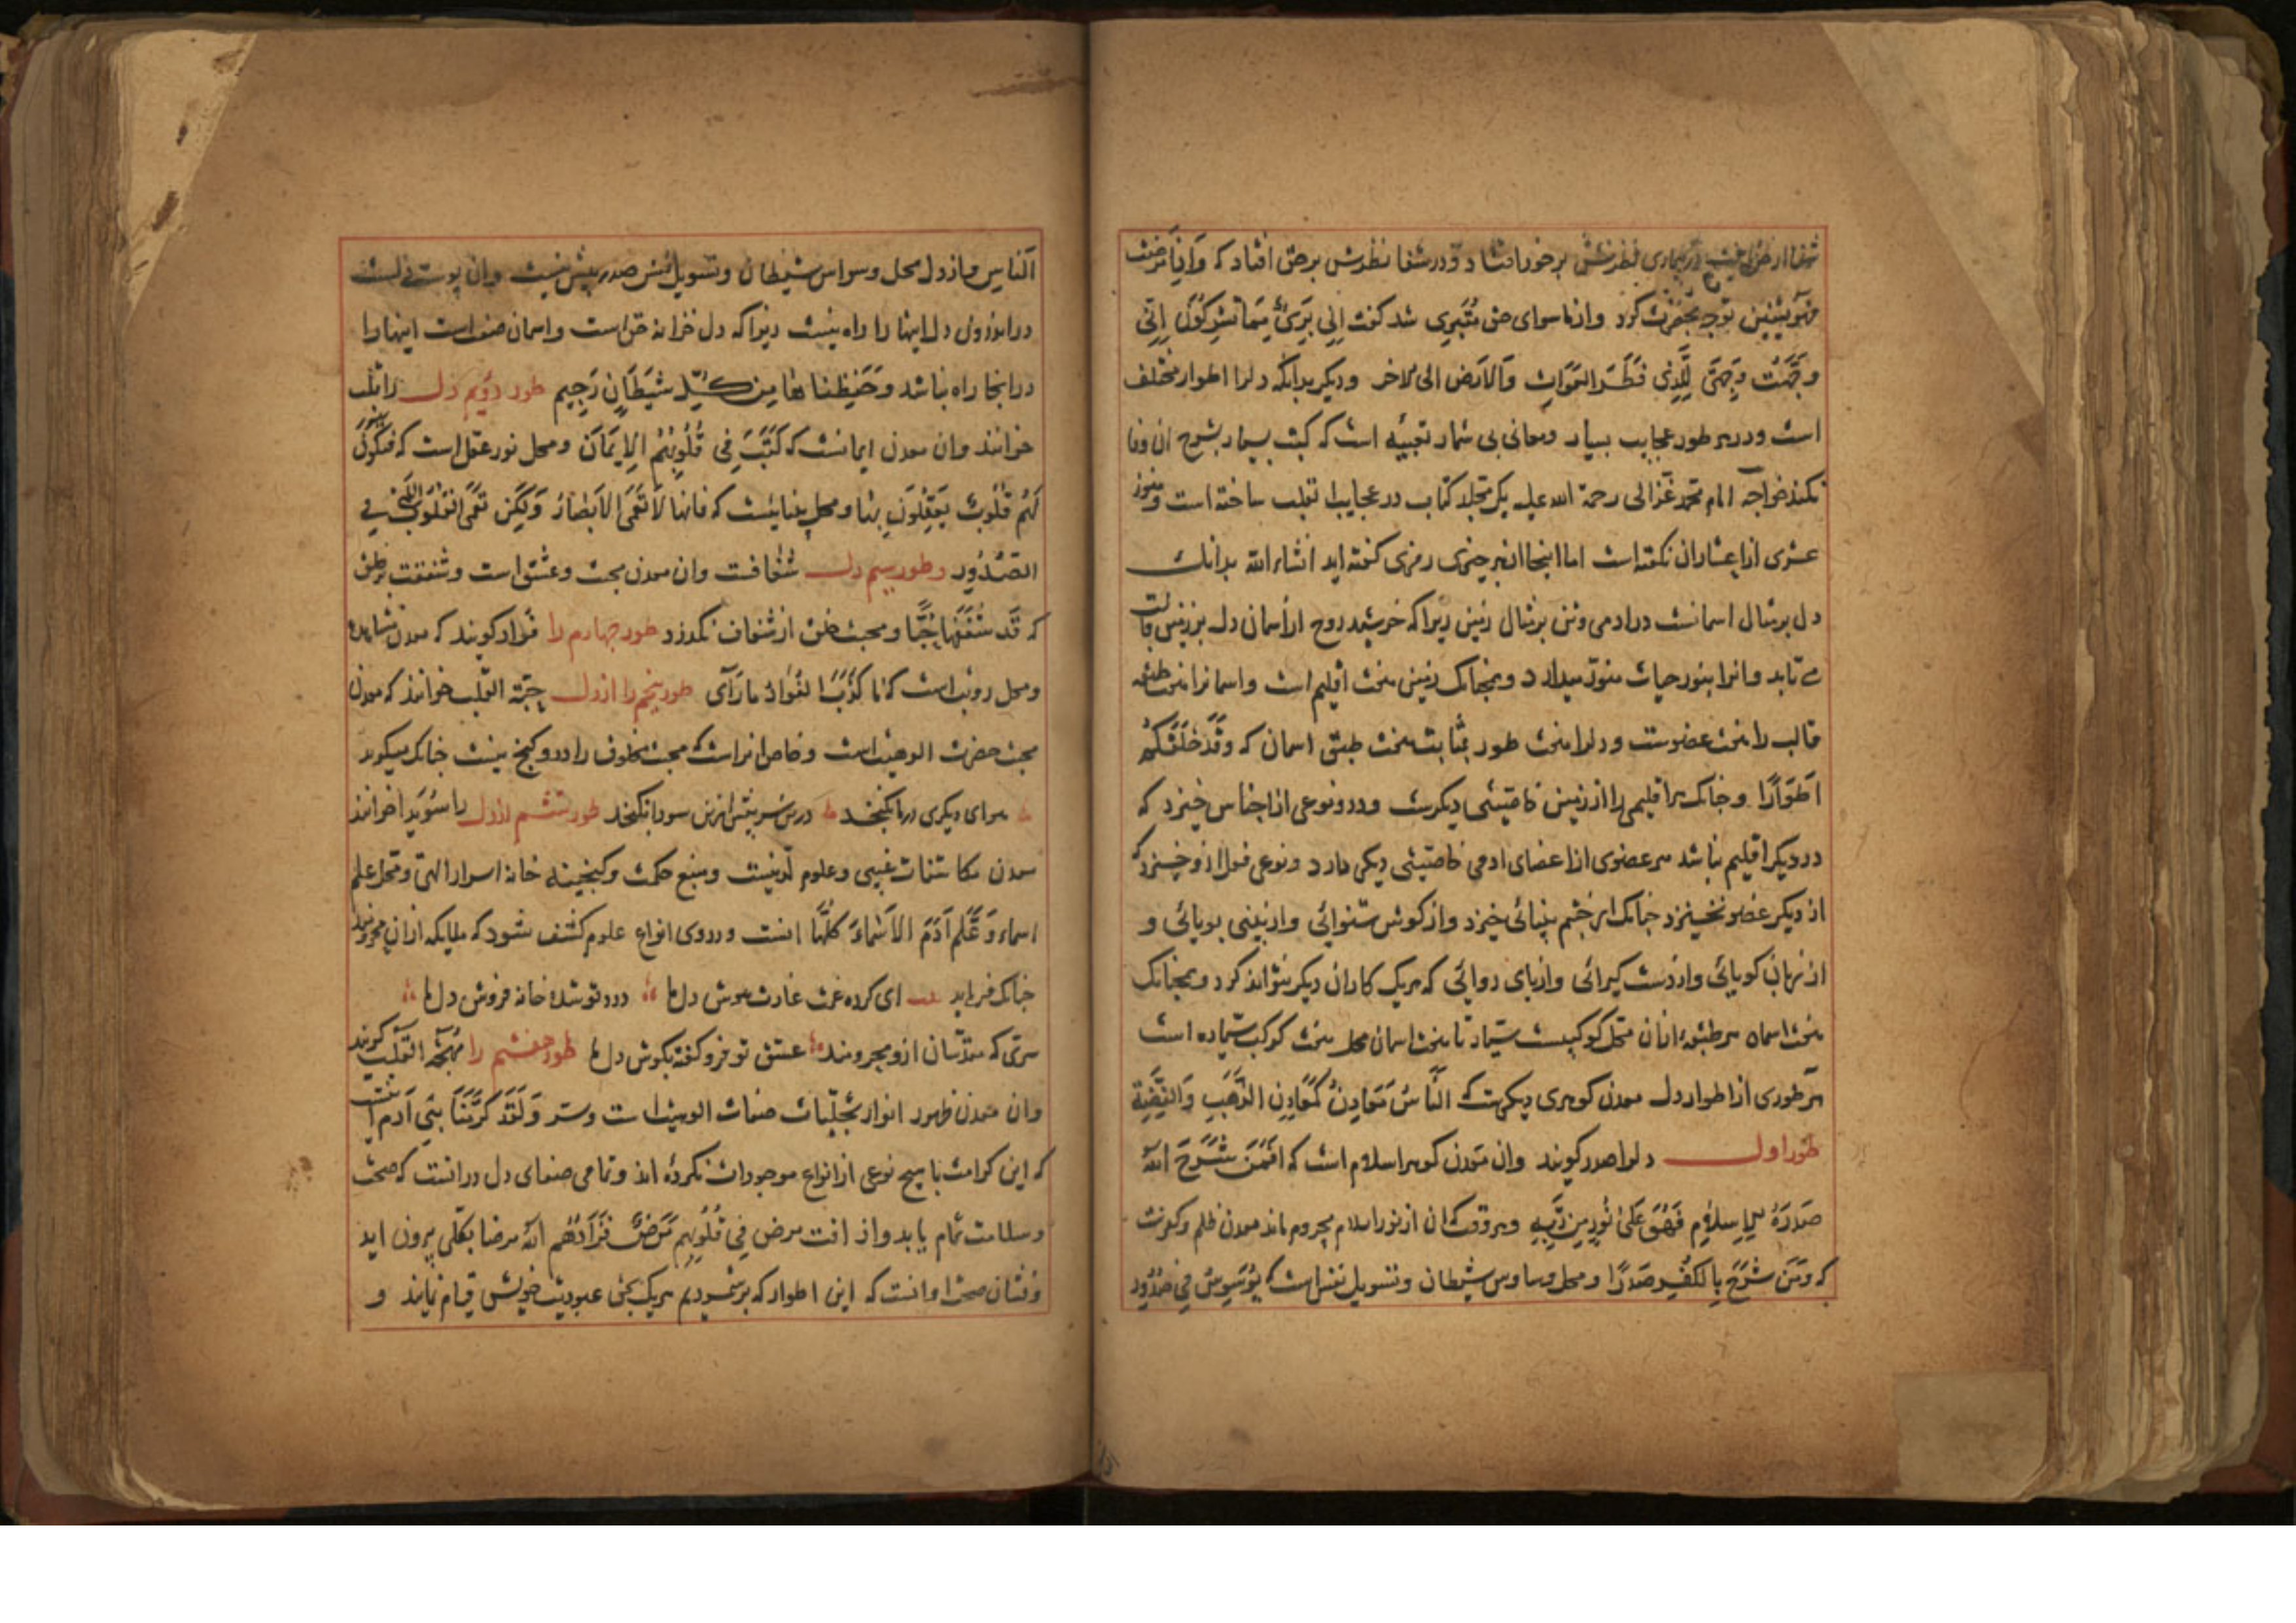 شفا از حق یافت در بیماری نظرش بر خود افتاد و در شفا نظرش بر حق افتاد که وَاِذَا مَرِضْتُ
فَهُوَ یَشْفِینِ توجه بحضرت کرد و از ما سوای حق مُتَبَرِی شد گفت اِنِّی بَرِیءٌ مِمَّا تُشْرِکُونَ اِنِّی
وَجَّهْتُ وَجْهِیَ لِلَّذِی فَطَرَ السَّمَوَاتِ وَالاَرْضَ الی الاخر و دیگر بدانکه دلرا اطوار مختلف
است و در هر طور عجایب بسیار و معانی بی شمار تعبیه است که کتب بسیار بشرح ان وفا
نکند خواجه امام محمد غزالی رحمة الله علیه یک مجلد کتاب در عجایب القلب ساخته است و هنوز
عشری از اعشار ان نکفته است اما اینجا از هر چیزی رمزی کفته اید انشاء الله بدانک
دل بر مثال اسمانست در ادمی و تن بر مثال زمین زیرا که خرشید روح از اسمان دل بر زمین قالب
می تابد و انرا بنور حیات منور میدارد و همچنانک زمین هفت اقلیم است و اسمانرا هفت طبقه
قالب را هفت عضوست و دلرا هفت طور بمثابت هفت طبق اسمان که وَقَدْ خَلَقَکُمْ
اَطْوَارًا و چنانک هر اقلیمی را از زمین خاصیتی دیکرست و درو نوعی از اجناس خیزد که
در دیکر اقلیم نباشد هر عضوی از اعضای ادمی خاصیتی دیکر دارد و نوعی فعل ازو خیزد که
از دیکر عضو نخیزد چنانک از چشم بینائی خیزد و از کوش شنوائی و از بینی بویائی و
از زبان کویائی و از دست کیرائی و از پای روائی که هر یک کار ان دیکر نتواند کرد و همچنانک
هفت اسمان هر طبقه ازان محل کوکبیست سیار تا هفت اسمان محل هفت کوکب سیاره است
هر طوری از اطوار دل معدن کوهری دیکرست که اَلنَّاسُ مَعَادِنُ کَمَعَادِنِ الذَّهَبِ وَالْفِضَّةِ
طور اول دلرا صدر کویند وان معدن کوهر اسلام است که اَفَمَنْ شَرَحَ اللّٰهُ
صَدْرَهُ لِلْاِسْلَامِ فَهُوَ عَلَی نُورٍ مِنْ رَبِّهِ و هر وقت که ان از نور اسلام محروم ماند معدن ظلم و کفرست
که وَمَنْ شَرَحَ بِالْکُفْرِ صَدْرًا و محل وساوس شیطان و تسویل نفس است که یُوَسْوِسُ فِی صُدُورِ
اَلنَّاسِ و از دل محل وسواس شیطان و تسویل نفس صدر بیش نیست وان پوست دلست
در اندرون دل اینها را راه نیست زیرا که دل خزانه حق است و اسمان صفت است اینها را
درانجا راه نباشد وَحَفِظْنَاهَا مِنْ کُلِّ شَیْطَانٍ رَجِیمٍ طور دویم دل را قلب
خوانند وان معدن ایمانست که کَتَبَ فِی قُلُوبِهِمُ الْاِیمَانَ و محل نور عقل است که فَتَکُونَ
لَهُمْ قُلُوبٌ یَعْقِلُونَ بِهَا و محل بینائیست که فَاِنَّهَا لَا تَعْمَی الْاَبْصَارُ وَلٰکِنْ تَعْمَی الْقُلُوبُ الَّتِی فِی
الصُّدُورِ و طور سیم دل شغافت وان معدن محبت و عشق است و شفقت بر خلق
که قَدْ شَغَفَهَا حُبًّا و محبت خلق از شغاف نکذرد طور چهارم را فؤاد کویند که معدن مشاهده
و محل رویت است که مَا کَذَبَ الْفُؤَادُ مَا رَآی طور پنجم را از دل حبة القلب خوانند که معدن
محبت حضرت الوهیت است و خاص انراست که محبت مخلوق را درو کنج نیست چنانک میکوید
هوای دیکری در ما نکنجد درین سر بیش ازین سودا نکنجد طور ششم از دل را سُوَیدا خوانند
معدن مکاشفات غیبی و علوم لدنیست و منبع حکمت و کنجینه خانه اسرار الهی و محل علم
اسماء وَعَلَّمَ آدَمَ الْاَسْمَاءَ کُلَّهَا انست و دروی انواع علوم کشف شود که ملایکه ازان محرومند
چنانک فرماید ای کرده غمت غارت هوش دل ما درد تو شده خانه فروش دل ما
سری که مقدسان ازو محرومند عشق تو فرو کفته بکوش دل ما طور هفتم را مُهْجَةُ الْقَلْبِ کویند
وان معدن ظهور انوار تجلیات صفات الوهیت است وسر وَلَقَدْ کَرَّمْنَا بَنِی آدَمَ انست
که این کرامت با هیچ نوعی از انواع موجودات نکرده اند و تمامی صفای دل درانست که صحت
و سلامت تمام یابد و از افت مرض فِی قُلُوبِهِمْ مَرَضٌ فَزَادَهُمُ اللّٰهُ مَرَضًا بکلی بیرون اید
و نشان صحت او انست که این اطوار که بر شمردیم هر یک بحق عبودیت خویش قیام نمایند و